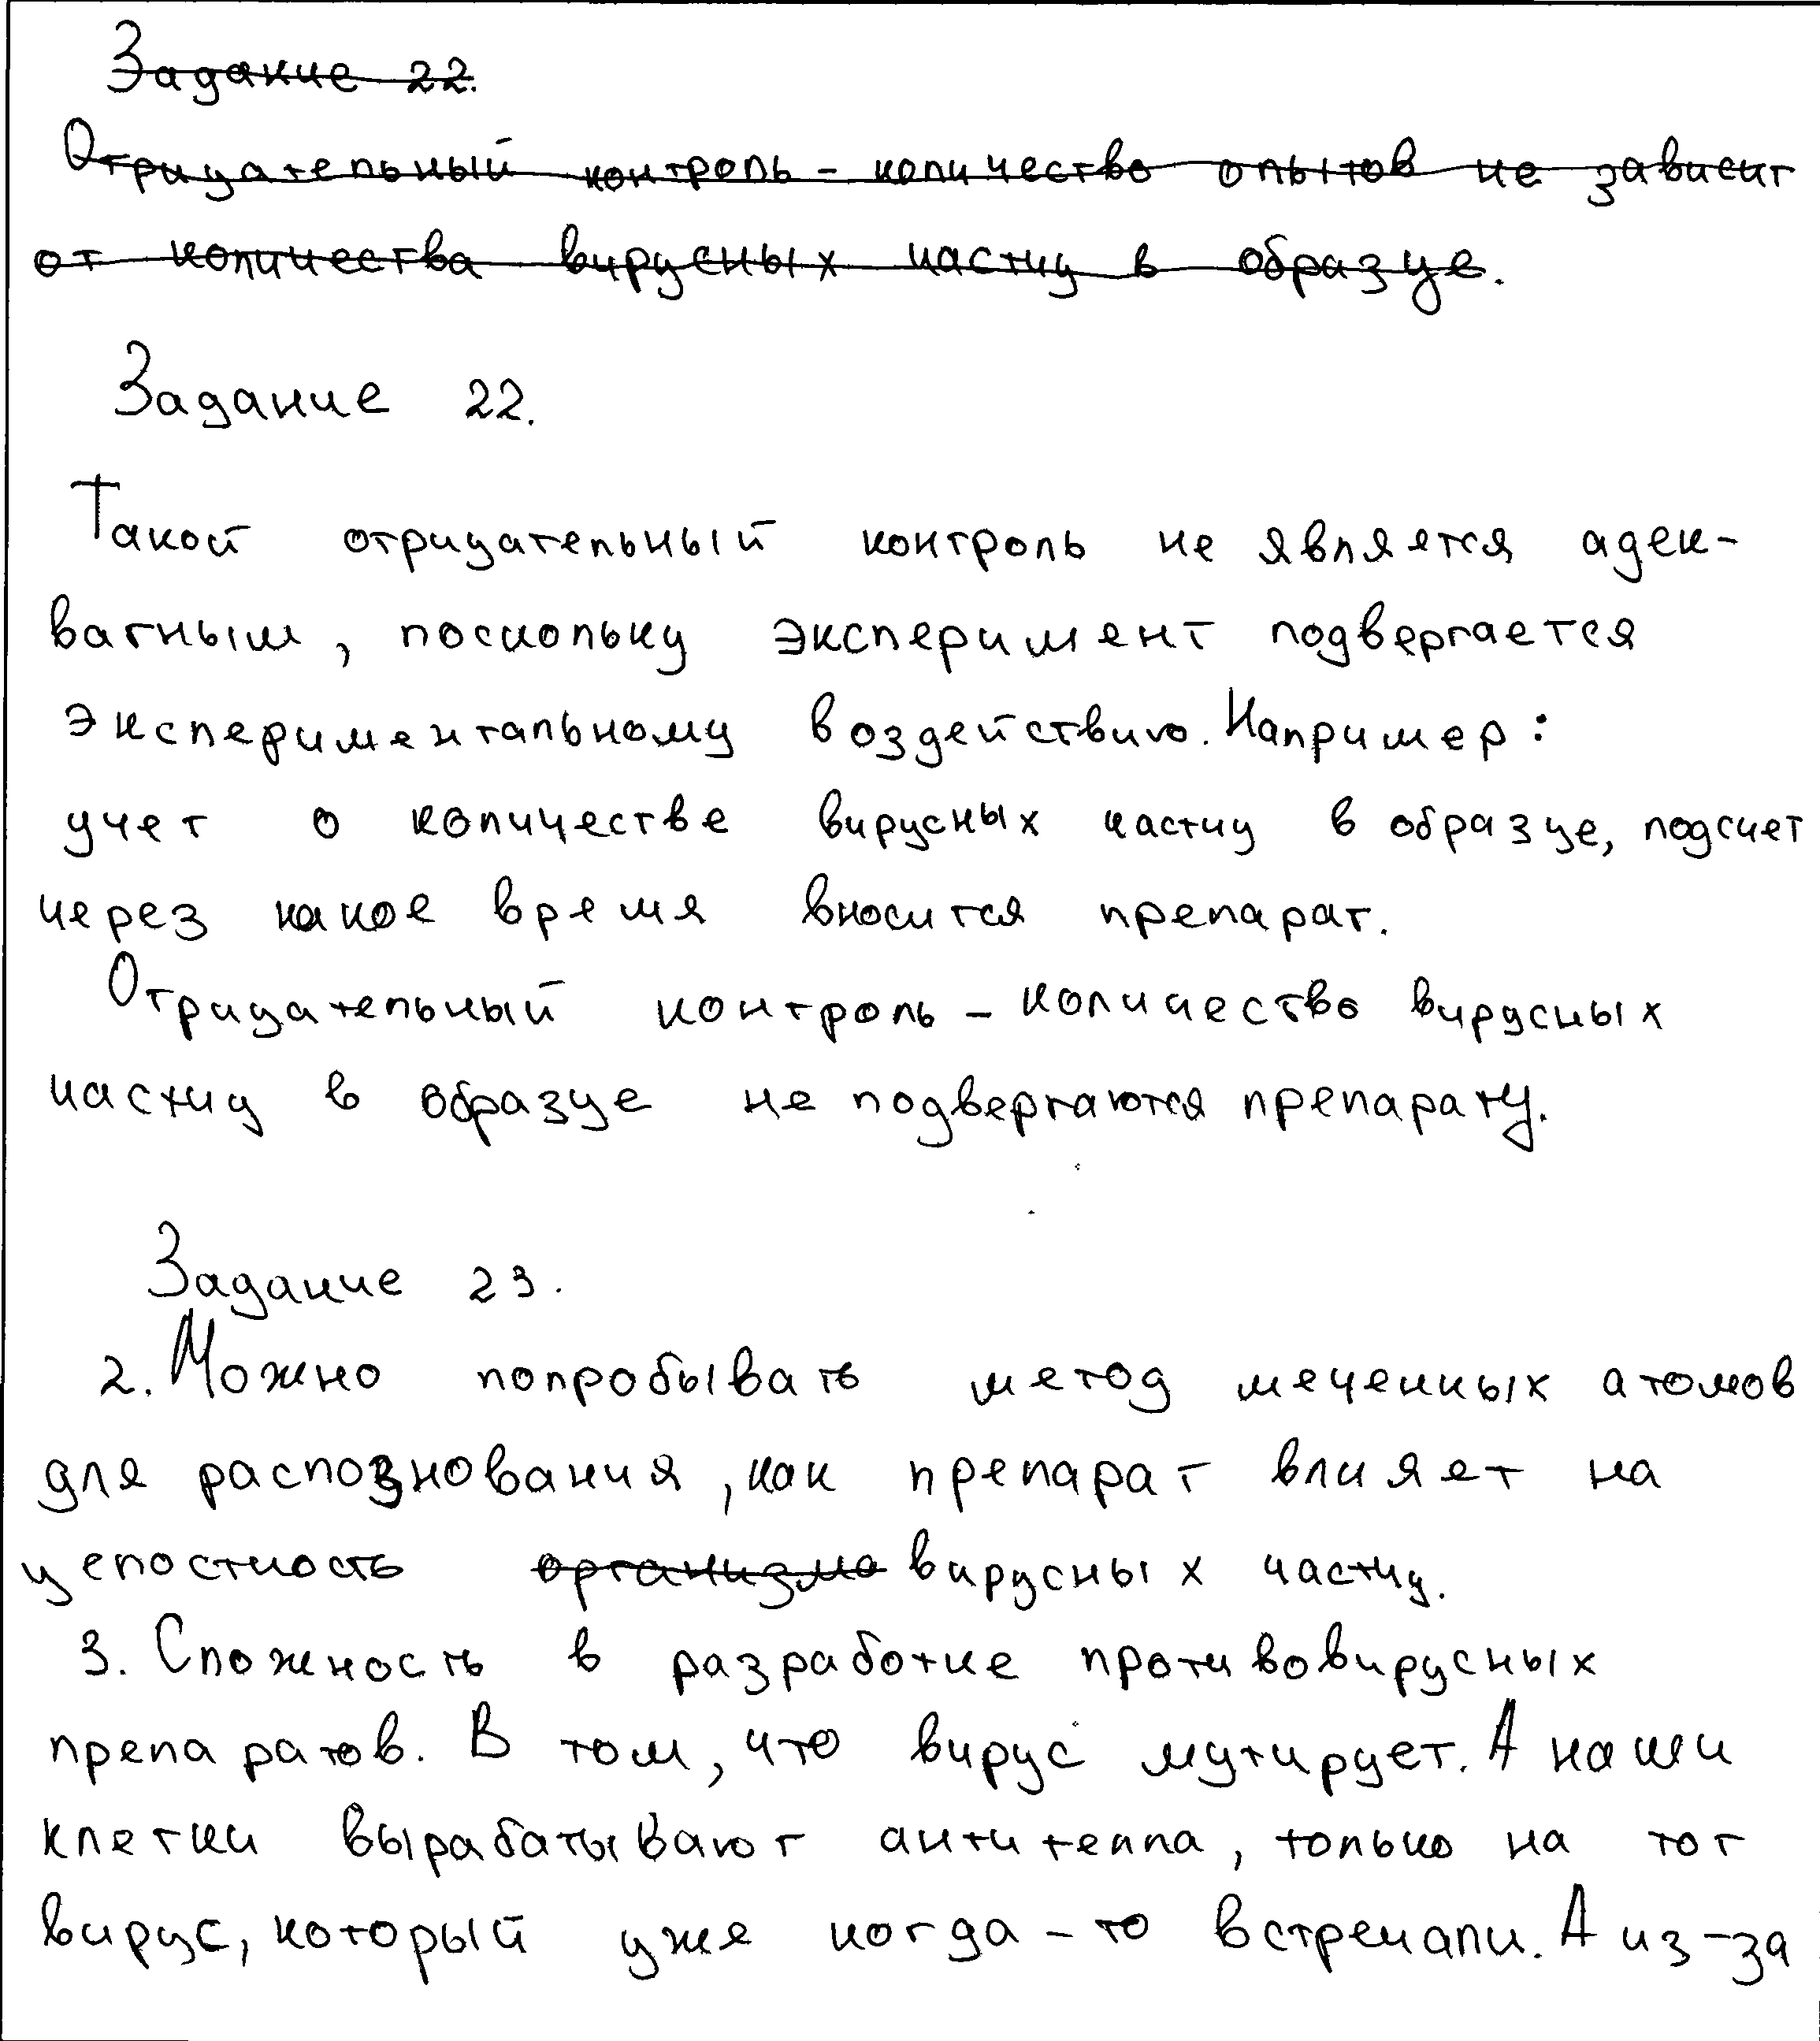 Задание 22.
Отрицательный контроль - количество опытов не зависит
от количества вирусных частиц в образце.
Задание 22.
Такой отрицательный контроль не является адек-
ватным, поскольку эксперимент подвергается
экспериментальному воздействию. Например:
учет о количестве вирусных частиц в образце, подсчет
через какое время вносится препарат.
Отрицательный контроль - количество вирусных
частиц в образце не подвергаются препарату.
Задание 23.
2. Можно попробывать метод меченных атомов
для распознования, как препарат влияет на
целостность организма вирусных частиц.
3. Сложность в разработке противовирусных
препаратов. В том, что вирус мутирует. А наши
клетки вырабатывают антителла, только на тот
вирус, который уже когда-то встречали. А из-за